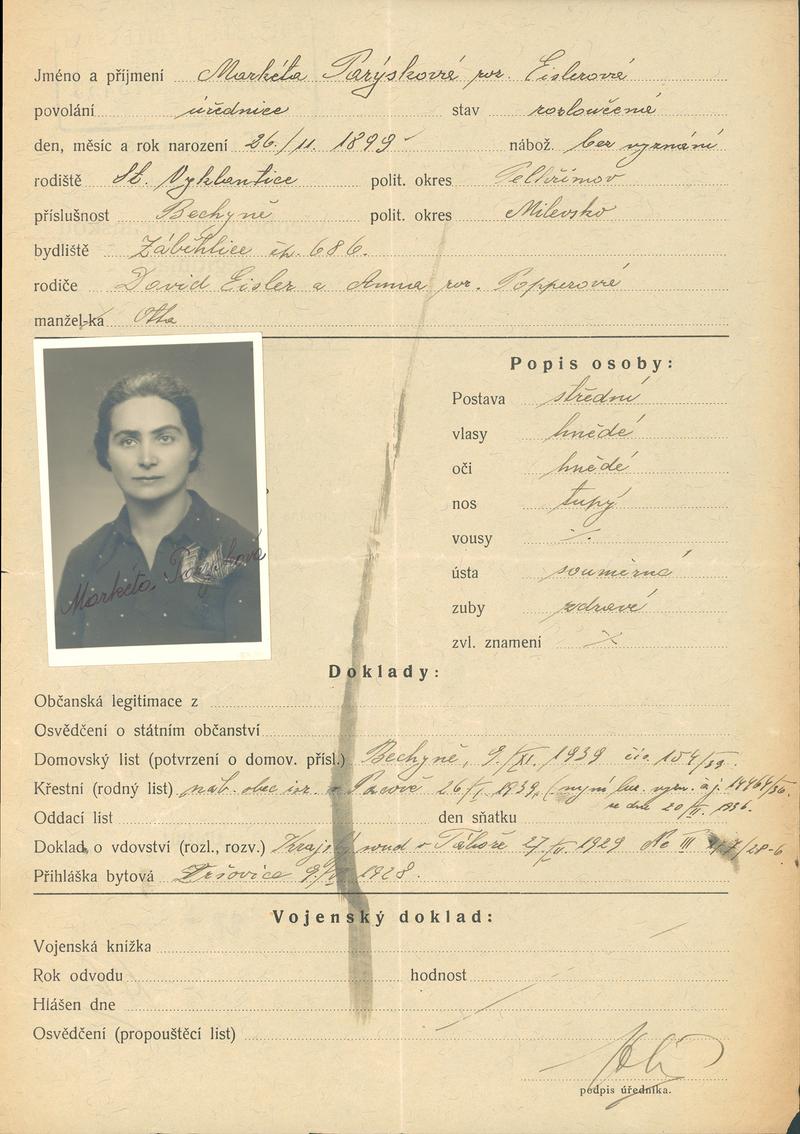 Jméno a příjmení Markéta Parýsková roz. Eislerová
povolání úřednice stav rozloučená
den, měsíc a rok narození 26./11. 1899 nábož. bez vyznání
rodiště St. Vyklantice polit. okres Pelhřimov
příslušnost Bechyně polit. okres Milevsko
bydliště Záběhlice čp. 686.
rodiče David Eisler a Anna roz. Popperová
manžel-ka Otto
Popis osoby:
Postava střední
vlasy hnědé
oči hnědé
nos tupý
vousy ./.
ústa souměrná
zuby zdravé
zvl. znamení
Markéta Parýsková
Doklady:
Občanská legitimace z
Osvědčení o státním občanství
Domovský list (potvrzení o domov. přísl.) Bechyně, 9./XI. 1939 čís. 154/39.
Křestní (rodný list) náb. obec isr. v Pacově 26/I. 1939, (nyní bez vyzn. č.j. 14464/36
ze dne 20/II. 1936.
Oddací list den sňatku
Doklad o vdovství (rozl., rozv.) Krajský soud v Táboře 27/II. 1929 Nc III /28-6
Přihláška bytová Vršovice 1928.
Vojenský doklad:
Vojenská knížka
Rok odvodu hodnost
Hlášen dne
Osvědčení (propouštěcí list)
podpis úředníka.